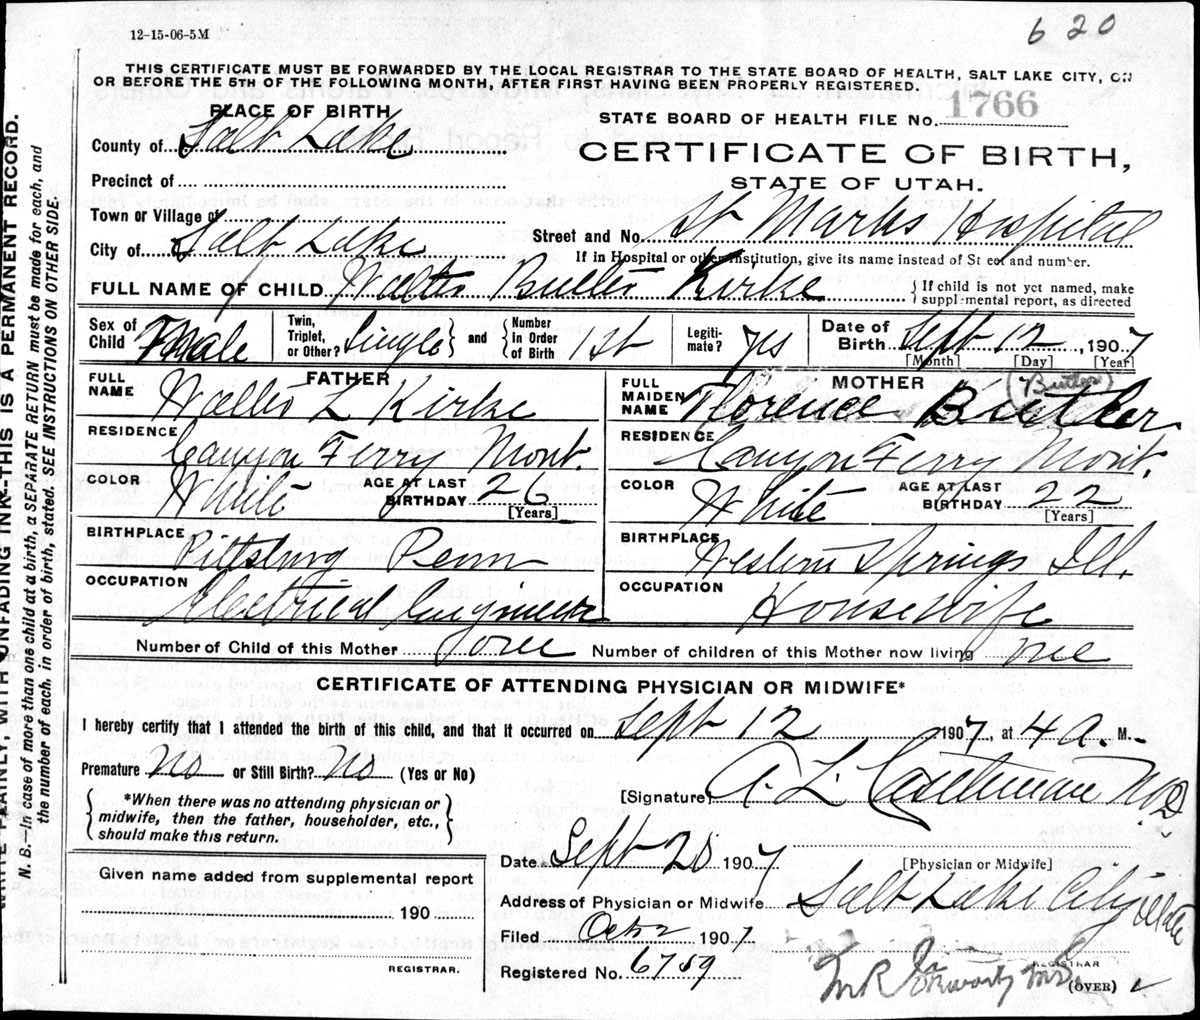 12-15-06-5M
620
THIS CERTIFICATE MUST BE FORWARDED BY THE LOCAL REGISTRAR TO THE STATE BOARD OF HEALTH, SALT LAKE CITY, ON
OR BEFORE THE 5TH OF THE FOLLOWING MONTH, AFTER FIRST HAVING BEEN PROPERLY REGISTERED.
PLACE OF BIRTH
STATE BOARD OF HEALTH FILE No. 1766
County of Salt Lake
CERTIFICATE OF BIRTH,
STATE OF UTAH.
Precinct of
Town or Village of
City of Salt Lake
Street and No. St Marks Hospital
If in Hospital or other Institution, give its name instead of Street and number.
FULL NAME OF CHILD Walter Butler Kirke
{ If child is not yet named, make supplemental report, as directed
Sex of Child Male
Twin, Triplet, or Other? Single } and { Number In Order of Birth 1st
Legitimate? yes
Date of Birth Sept 12, 1907
[Month] [Day] [Year]
FATHER
FULL NAME Walter L Kirke
RESIDENCE Canyon Ferry Mont.
COLOR White
AGE AT LAST BIRTHDAY 26
[Years]
BIRTHPLACE Pittsburg Penn
OCCUPATION Electrical Engineer
MOTHER
(Butler)
FULL MAIDEN NAME Florence Butler
RESIDENCE Canyon Ferry Mont.
COLOR White
AGE AT LAST BIRTHDAY 22
[Years]
BIRTHPLACE Western Springs Ill.
OCCUPATION Housewife
Number of Child of this Mother one Number of children of this Mother now living one
CERTIFICATE OF ATTENDING PHYSICIAN OR MIDWIFE*
I hereby certify that I attended the birth of this child, and that it occurred on Sept 12 1907, at 4 a. M.
Premature No or Still Birth? No (Yes or No)
{ *When there was no attending physician or midwife, then the father, householder, etc., should make this return. }
[Signature] A. L. Castleman M.D.
[Physician or Midwife]
Date Sept 28 1907
Address of Physician or Midwife Salt Lake City Utah
Filed Oct 2 1907
Registered No. 6759
REGISTRAR
(OVER)
Given name added from supplemental report
190
REGISTRAR.
WRITE PLAINLY, WITH UNFADING INK--THIS IS A PERMANENT RECORD.
N. B.--In case of more than one child at a birth, a SEPARATE RETURN must be made for each, and
the number of each, in order of birth, stated. SEE INSTRUCTIONS ON OTHER SIDE.